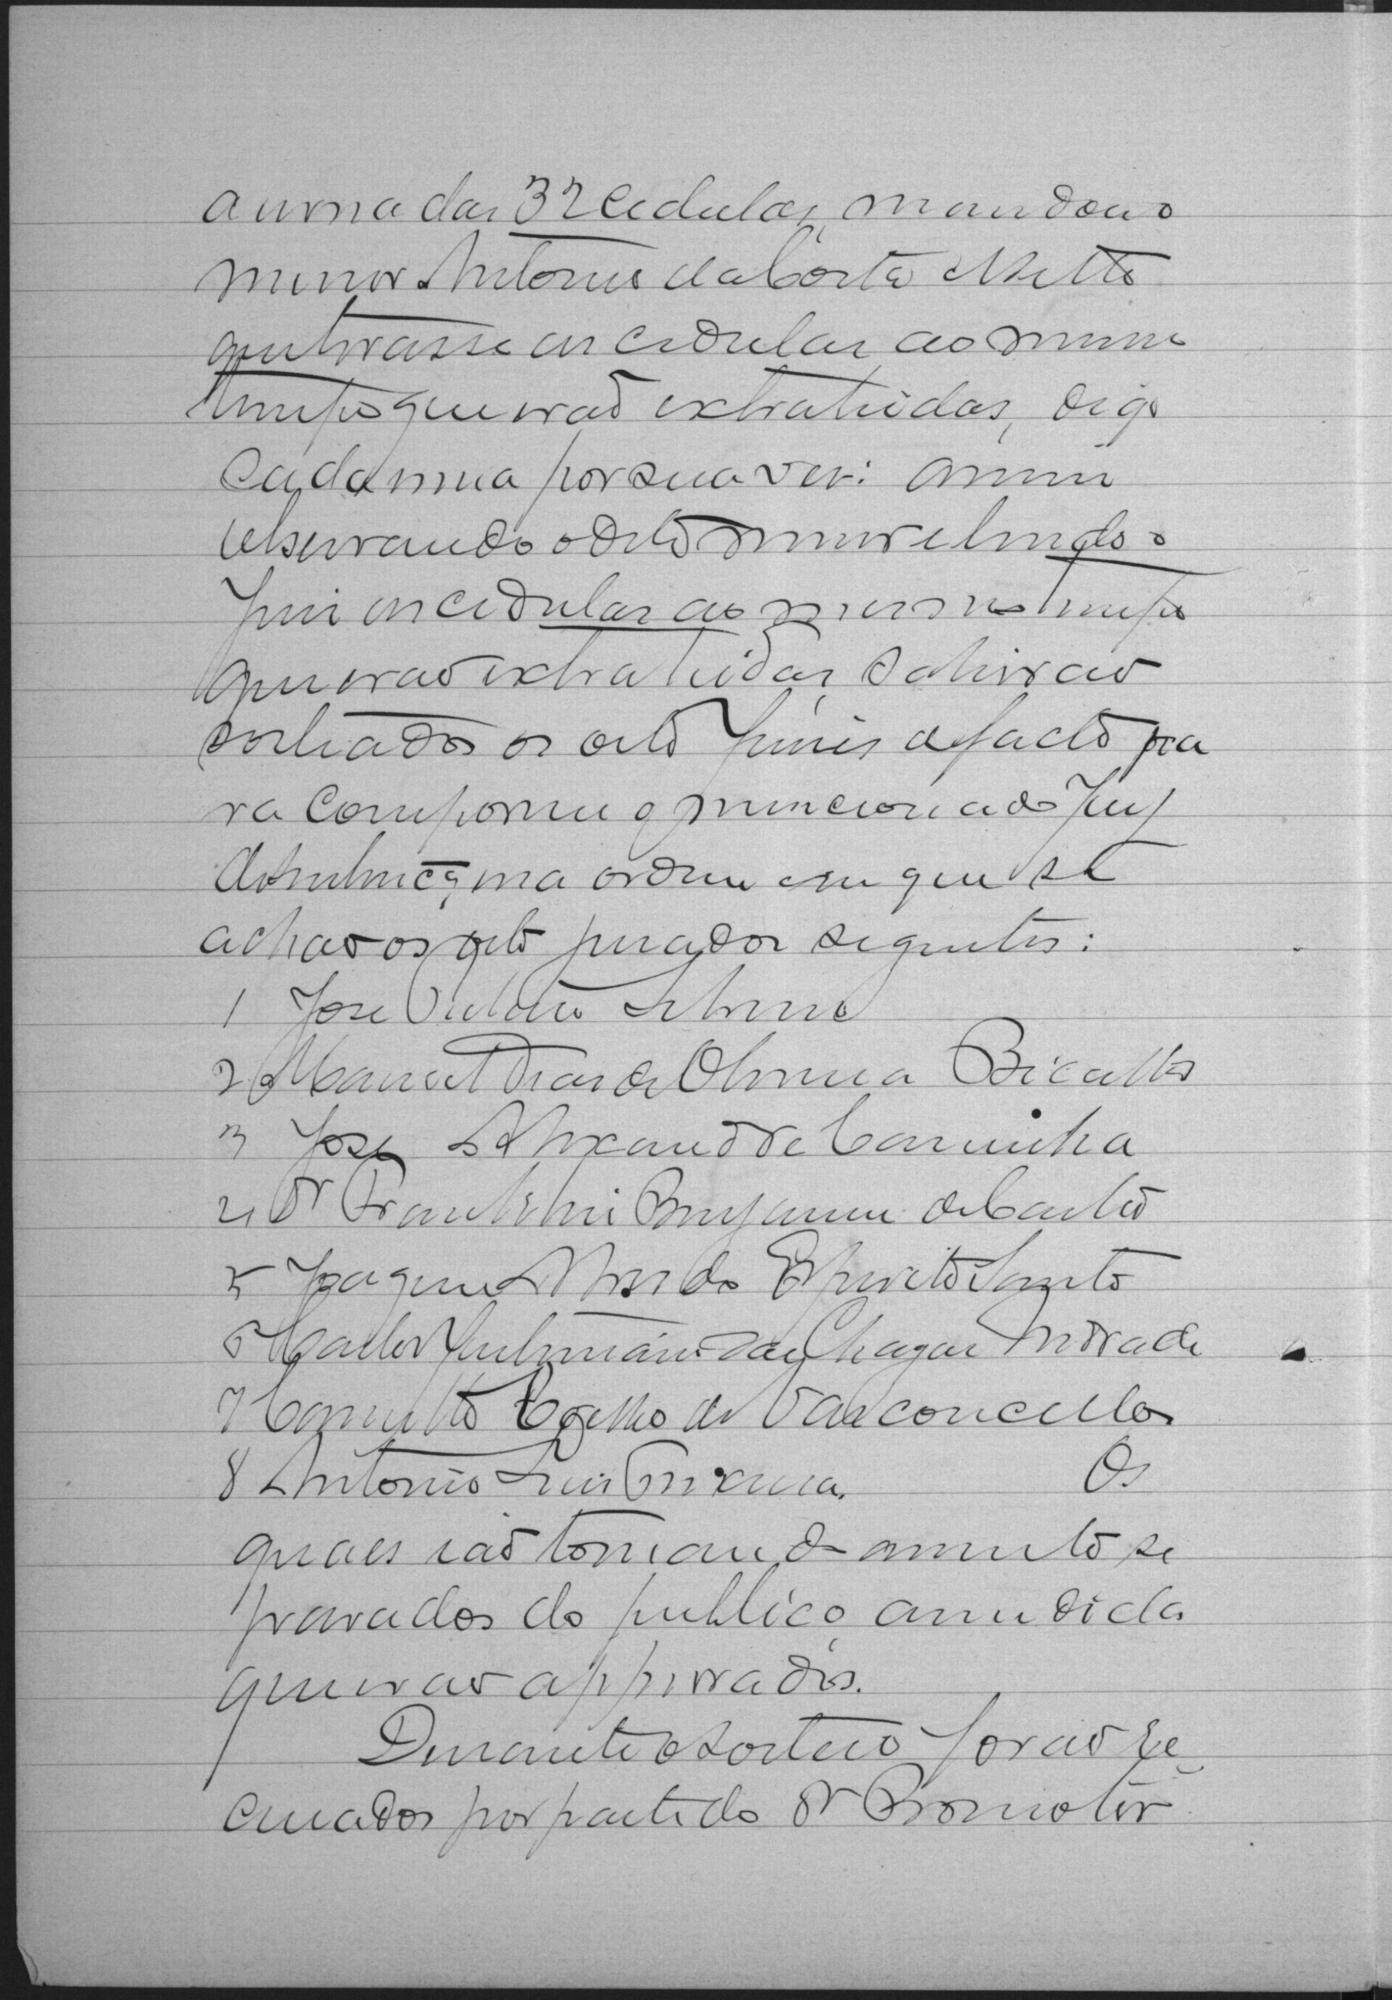 a urna das 32 cedulas, mandou o
menor Antonio da Costa Netto
que tirasse as cedulas ao mesmo
tempo que erão extrahidas, digo
cada uma por sua vez: assim
observando o dito menor e lendo o
juiz as cedulas ao mesmo tempo
que erão extrahidas, sahirão
sorteados os oito juizes de facto pa
ra comporem o mencionado Jury
de sentença, na ordem em que se
achão os oito jurados seguintes:
1 José
2 Manoel Dias de Oliveira Bicalho
3 José Alexandre Caminha
4 Dr Franklin Benjamin de Castro
5 Joaquim Alves do Espirito Santo
6 Carlos das Chagas Andrade
7 Camillo Coelho de Vasconcellos
8 Antonio Luis Teixeira. Os
quaes vão tomando assento se
parados do publico, a medida
que erão apurados.
Durante o sorteio forão re
cusados por parte do Dr Promotor